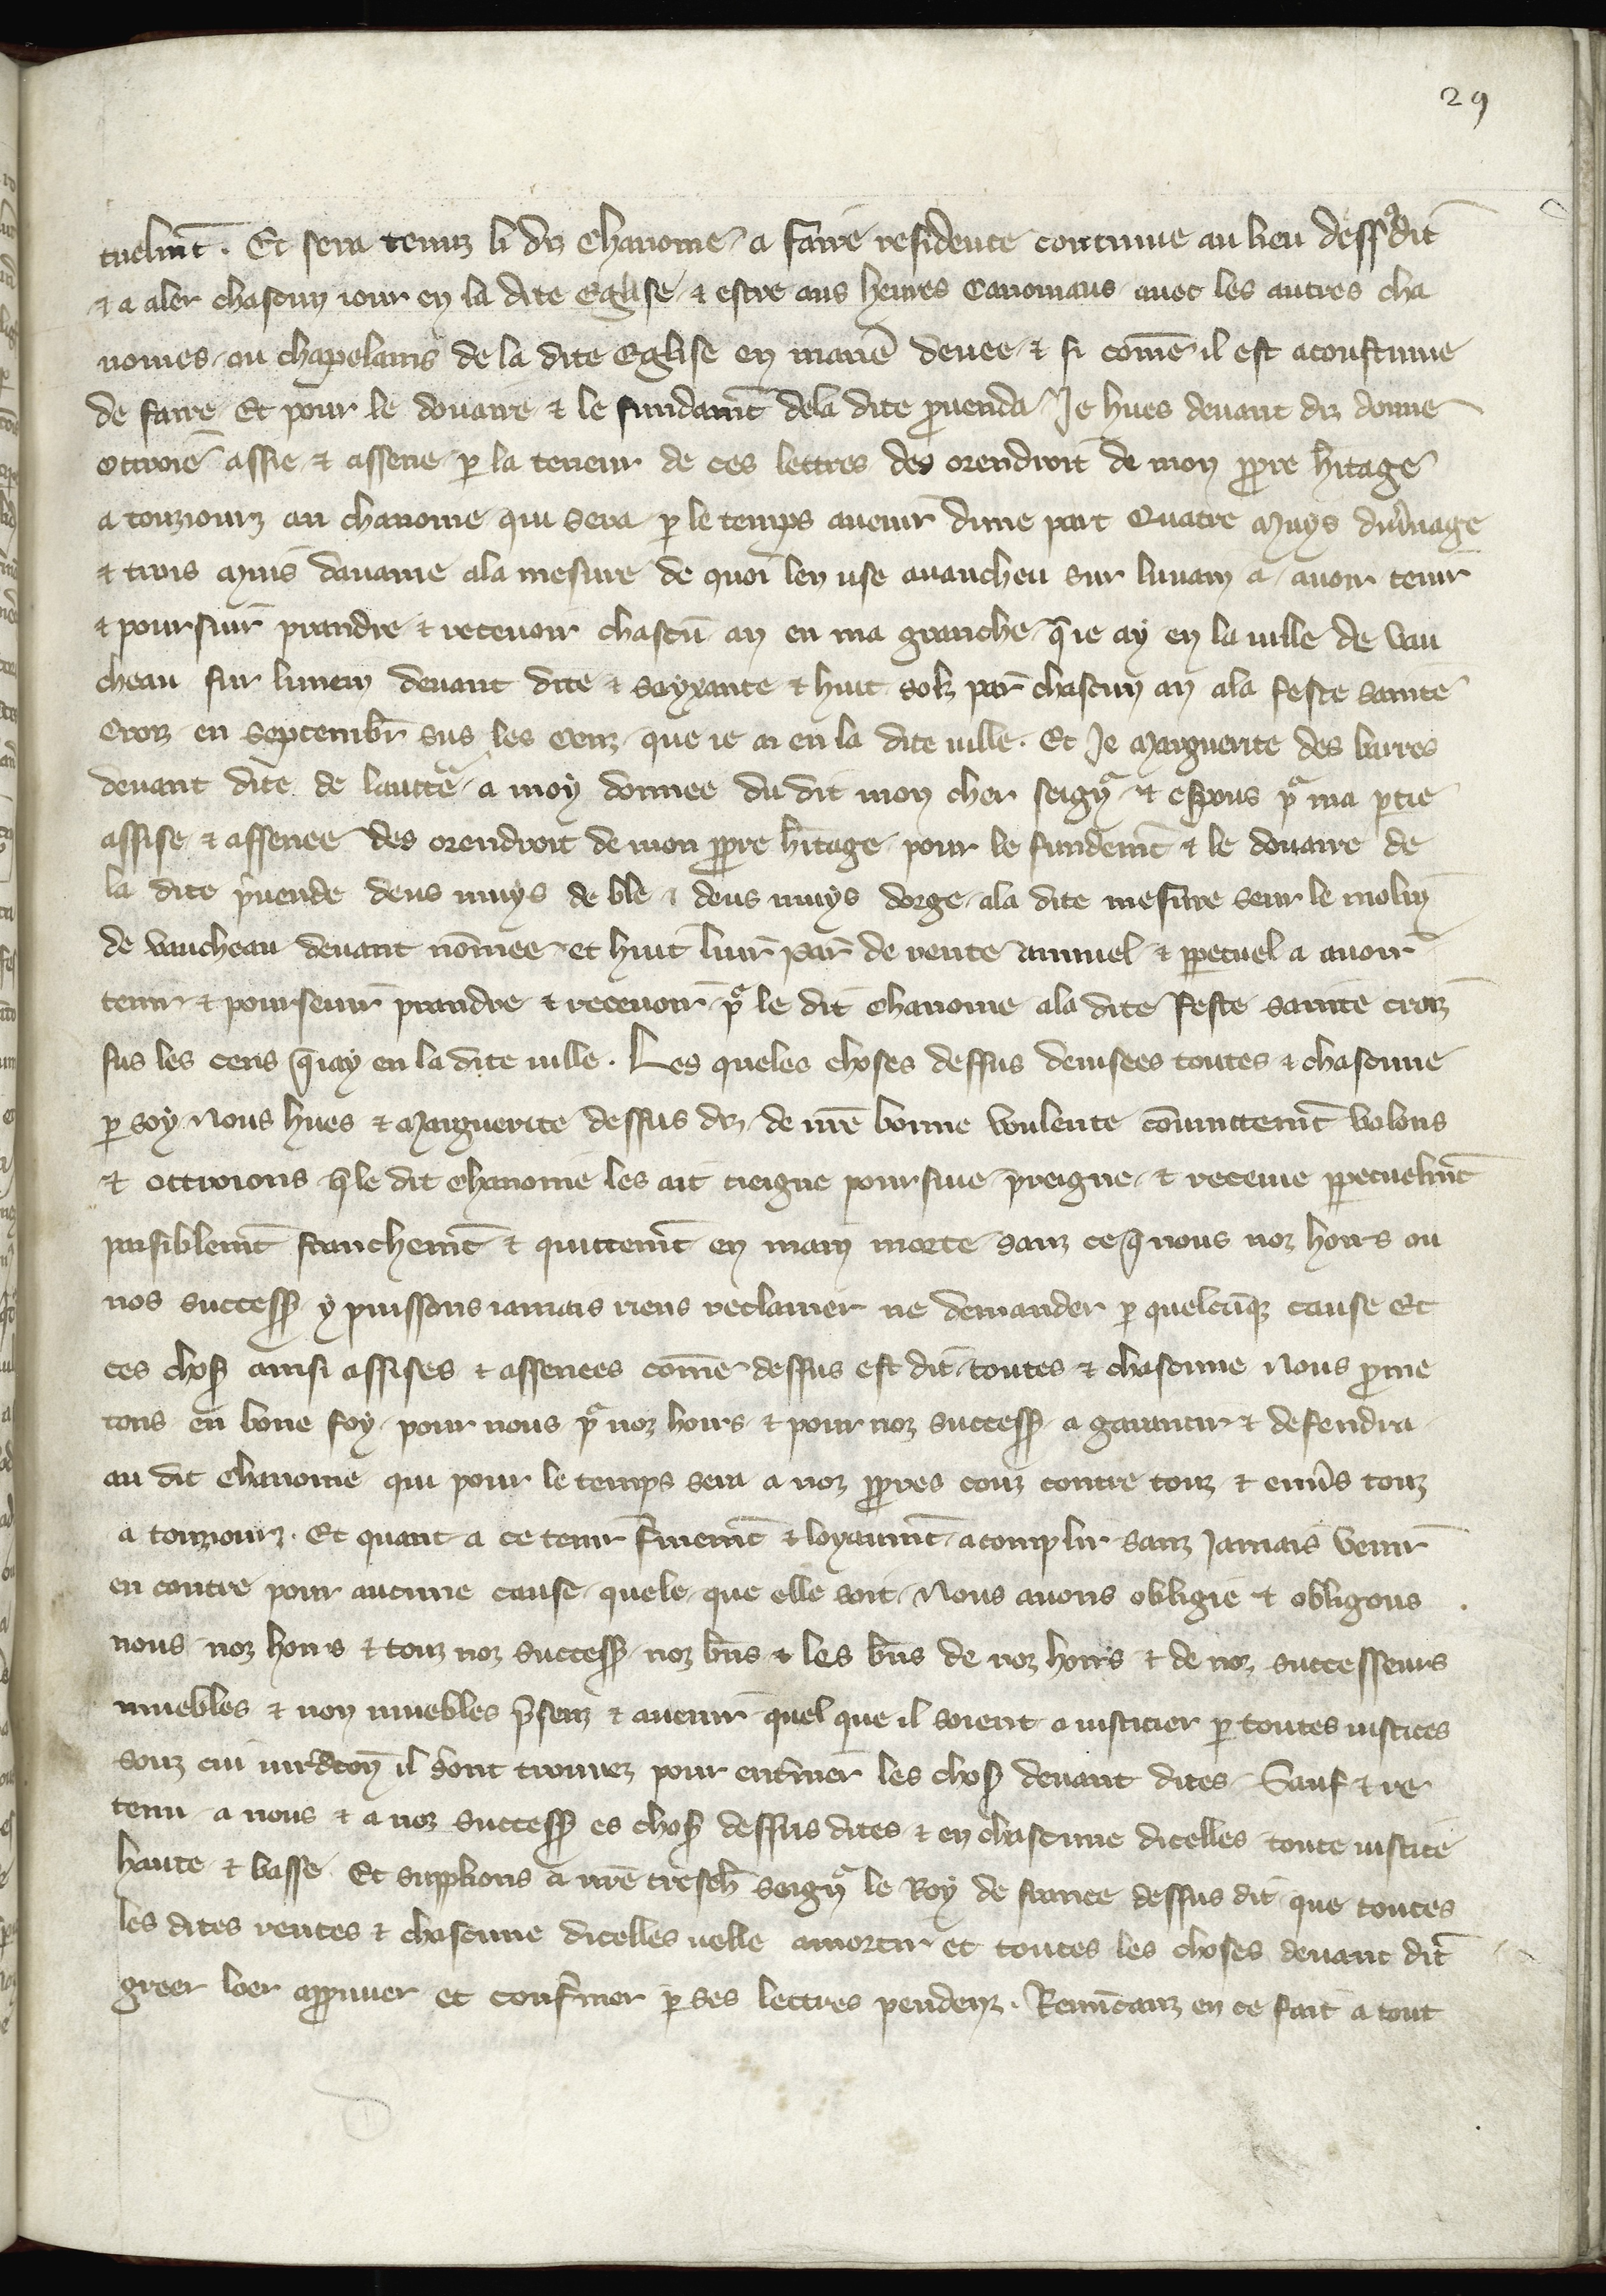 29
tuelmt̄. Et sera tenuz li diz Chanoine a faire residence continue au lieu dessꝰ dit
⁊ a aler chascun iour en la dite Eglise ⁊ estre aus heures Canoniaus auec les autres cha
noines ou chapelains de la dite Eglise en manie᷑ deuee ⁊ si com̄e il est acoustume
de faire Et pour le douaire ⁊ le fundamt̄ dela dite ꝓuenda Je hues deuant diz donne
ottroie assie ⁊ assene ꝑ la teneur de ces lettres des orendroit de mon ꝓpre h̄itage
a touziourz au chanoine qui sera ꝑ le temps auenir dune part Quatre Muys diu᷑nage
⁊ trois Muis dauaine ala mesure de quoi len use auaucheu sur luuain a auoir tenir
⁊ poursuir prandre ⁊ receuoir chascū an en ma granche q̄ ie ay en la uille de vau
cheau sur luuein deuant dite ⁊ soyxante ⁊ huit solz par̄ chascun an ala feste sainte
Croiz en Septembr̄ sus les Cenz que ie ai en la dite uille. Et Je Marguerite des barres
deuant dite de lauctēᵃ a moy donnee du dit mon cher seignᷣ ⁊ espous pᷣ ma ꝑtie
assise ⁊ assenee des orendroit de mon ꝓpre h̄itage pour le fundemt̄ ⁊ le douaire de
la dite p̄uende deus muys de ble ⁊ deus muys dorge ala dite mesure seur le molin
de vaucheau deuant nōmee et huit liur̄ par̄ de rente annuel ⁊ ꝑpetuel a auoir
tenir ⁊ pourseuir prandre ⁊ receuoir pᷣ le dit Chanoine ala dite Feste sainte croiz
sus les cens q̄ iay en la dite uille. Les queles choses dessus deuisees toutes ⁊ chascune
ꝑ soy Nous hues ⁊ Marguerite dessus diz de nr̄e bonne voulente cōmuttemt̄ volons
⁊ ottroions q̄ le dit Chanoine les ait tieigne poursiue preigne ⁊ receiue ꝑpetuelmt̄
paisiblemt̄ franchemt̄ ⁊ quittemt̄ en main morte sanz ce q̄ nous noz hoirs ou
nos success̄ y puissons iamais riens reclamer ne demander ꝑ quelcūq̄ cause Et
ces chos̄ ainsi assises ⁊ assenees com̄e dessus est dit toutes ⁊ chascune Nous ꝓme
tons en bone foy pour nous pᷣ noz hoirs ⁊ pour noz success̄ a garantir ⁊ defendra
au dit Chanoine qui pour le temps sera a noz ꝓpres couz contre touz ⁊ enu᷑s touz
a touziourz. Et quant a ce tenir f᷑memt̄ ⁊ loyaumt̄ acomplir sanz Jamais venir
en contre pour aucune cause quele que elle soit Nous auons obligie ⁊ obligons
nous noz hoirs ⁊ touz noz success̄ noz bn̄s ⁊ les bn̄s de noz hoirs ⁊ de noz successeurs
muebles ⁊ non muebles p̄senz ⁊ auenir quel que il soient a iusticier ꝑ toutes iustices
souz cui iurid̄con̄ il s᷑ont trouuez pour ent᷑iner les chos̄ deuant dites Sauf ⁊ re
tenu a nous ⁊ a noz success̄ es chos̄ dessus dites ⁊ en chascune dicelles toute iustice
haute ⁊ basse Et supplions a nr̄e tresch᷑ seignᷣ le Roy de france dessus dit que toutes
les dites rentes ⁊ chascune dicelles uelle amortir et toutes les choses deuant dit̄
greer loer aꝓuuer et conf᷑mer ꝑ ses lettres pendenz. Renūcanz en ce fait a tout